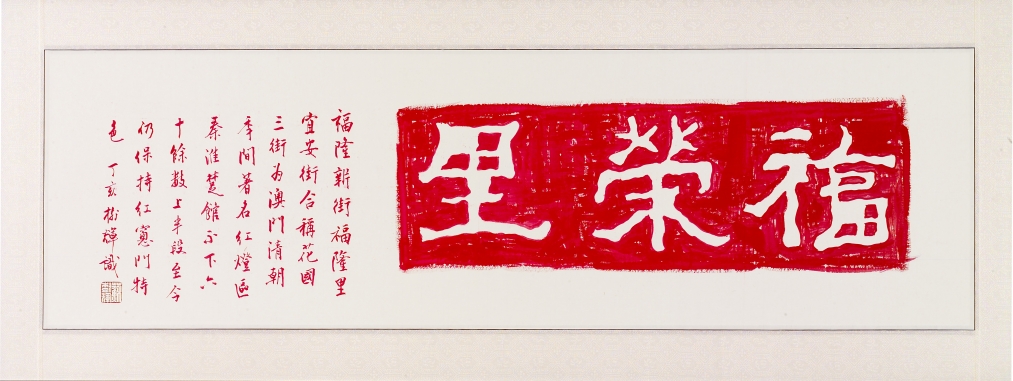 福榮里
福隆新街福隆里
宜安街合稱花國
三街为澳门清朝
年间著名红燈區
秦淮楚館不下六
十餘數上半段至今
仍保持红窗门特
色 丁亥 樹輝識